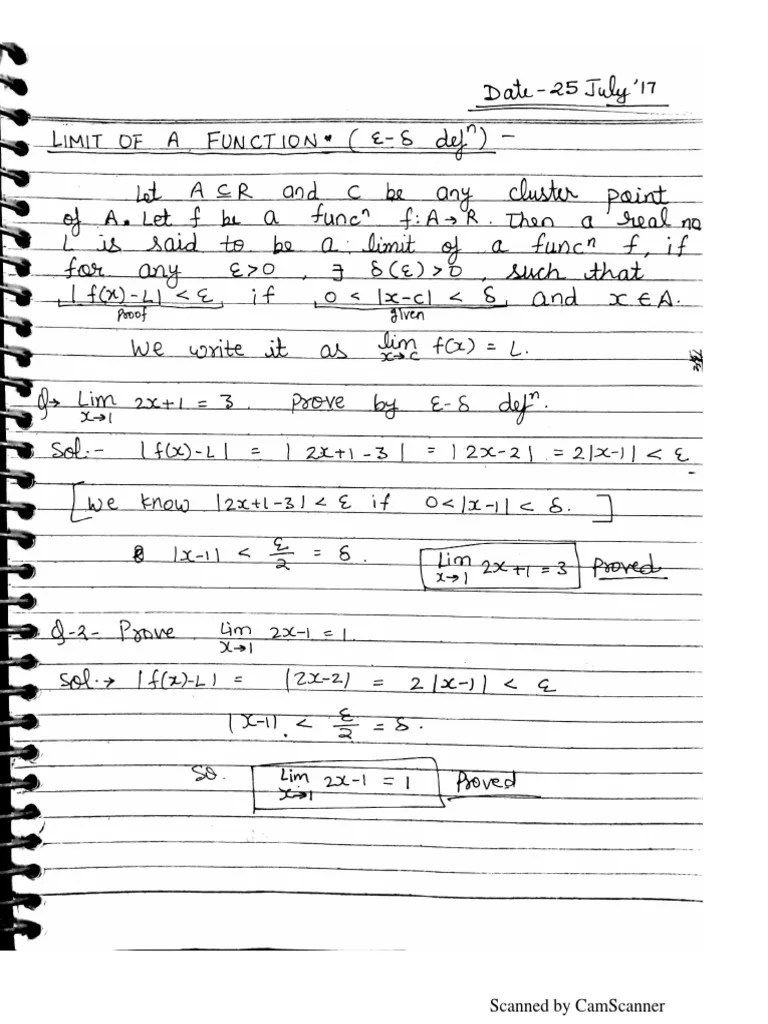 Date - 25 July '17
LIMIT OF A FUNCTION • ( ε-δ defⁿ) -
Let A ⊆ R and C be any cluster point
of A. Let f be a funcⁿ f: A → R. Then a real no
L is said to be a limit of a funcⁿ f, if
for any ε>0 , ∃ δ(ε)>0, such that
|f(x)-L| < ε if 0 < |x-c| < δ, and x ∈ A.
Proof given
We write it as lim x→c f(x) = L.
Q→ Lim x→1 2x+1 = 3. Prove by ε-δ defⁿ.
Sol:- |f(x)-L| = |2x+1-3| = |2x-2| = 2|x-1| < ε
[We know |2x+1-3| < ε if 0<|x-1| < δ. ]
|x-1| < ε/2 = δ. Lim x→1 2x+1 = 3 Proved
Q-2- Prove Lim x→1 2x-1 = 1.
Sol.→ |f(x)-L| = |2x-2| = 2|x-1| < ε
|x-1| < ε/2 = δ.
So. Lim x→1 2x-1 = 1 Proved
Scanned by CamScanner